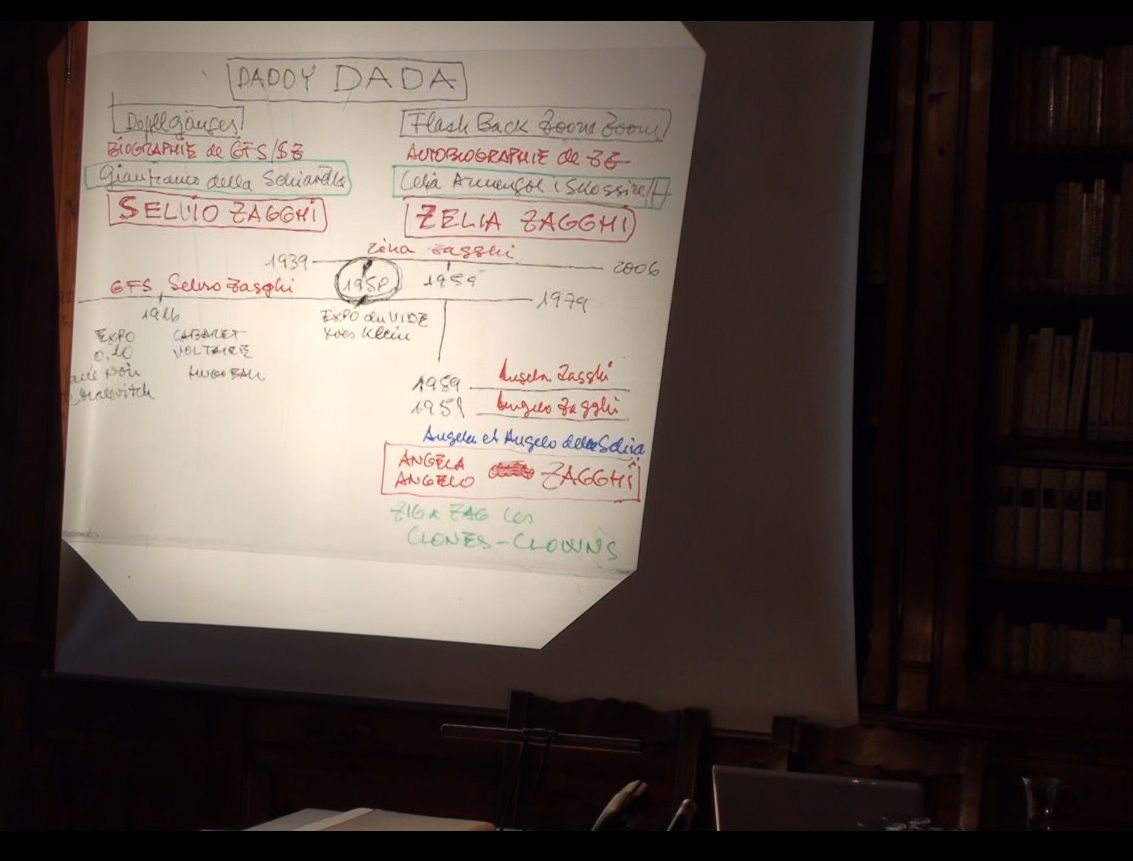 DADDY DADA
Dopelgänger
BIOGRAPHIE de GFS/SZ
Gianfranco della Schiarella
SELVIO ZAGGHI
Flash Back Zoom Zoom
AUTOBIOGRAPHIE de ZZ
Celia Armengol
ZELIA ZAGGHI
Zelia Zagghi
1939
2006
1958
1959
GFS Selvio Zagghi
1979
1916
EXPO
0,10
Malevitch
CABARET
VOLTAIRE
HUGO BALL
EXPO du VIDE
Yves Klein
1959 Angela Zagghi
1959 Angelo Zagghi
Angela et Angelo della
ANGELA
ANGELO
ZAGGHI
ZIG & ZAG les
CLONES-CLOWNS